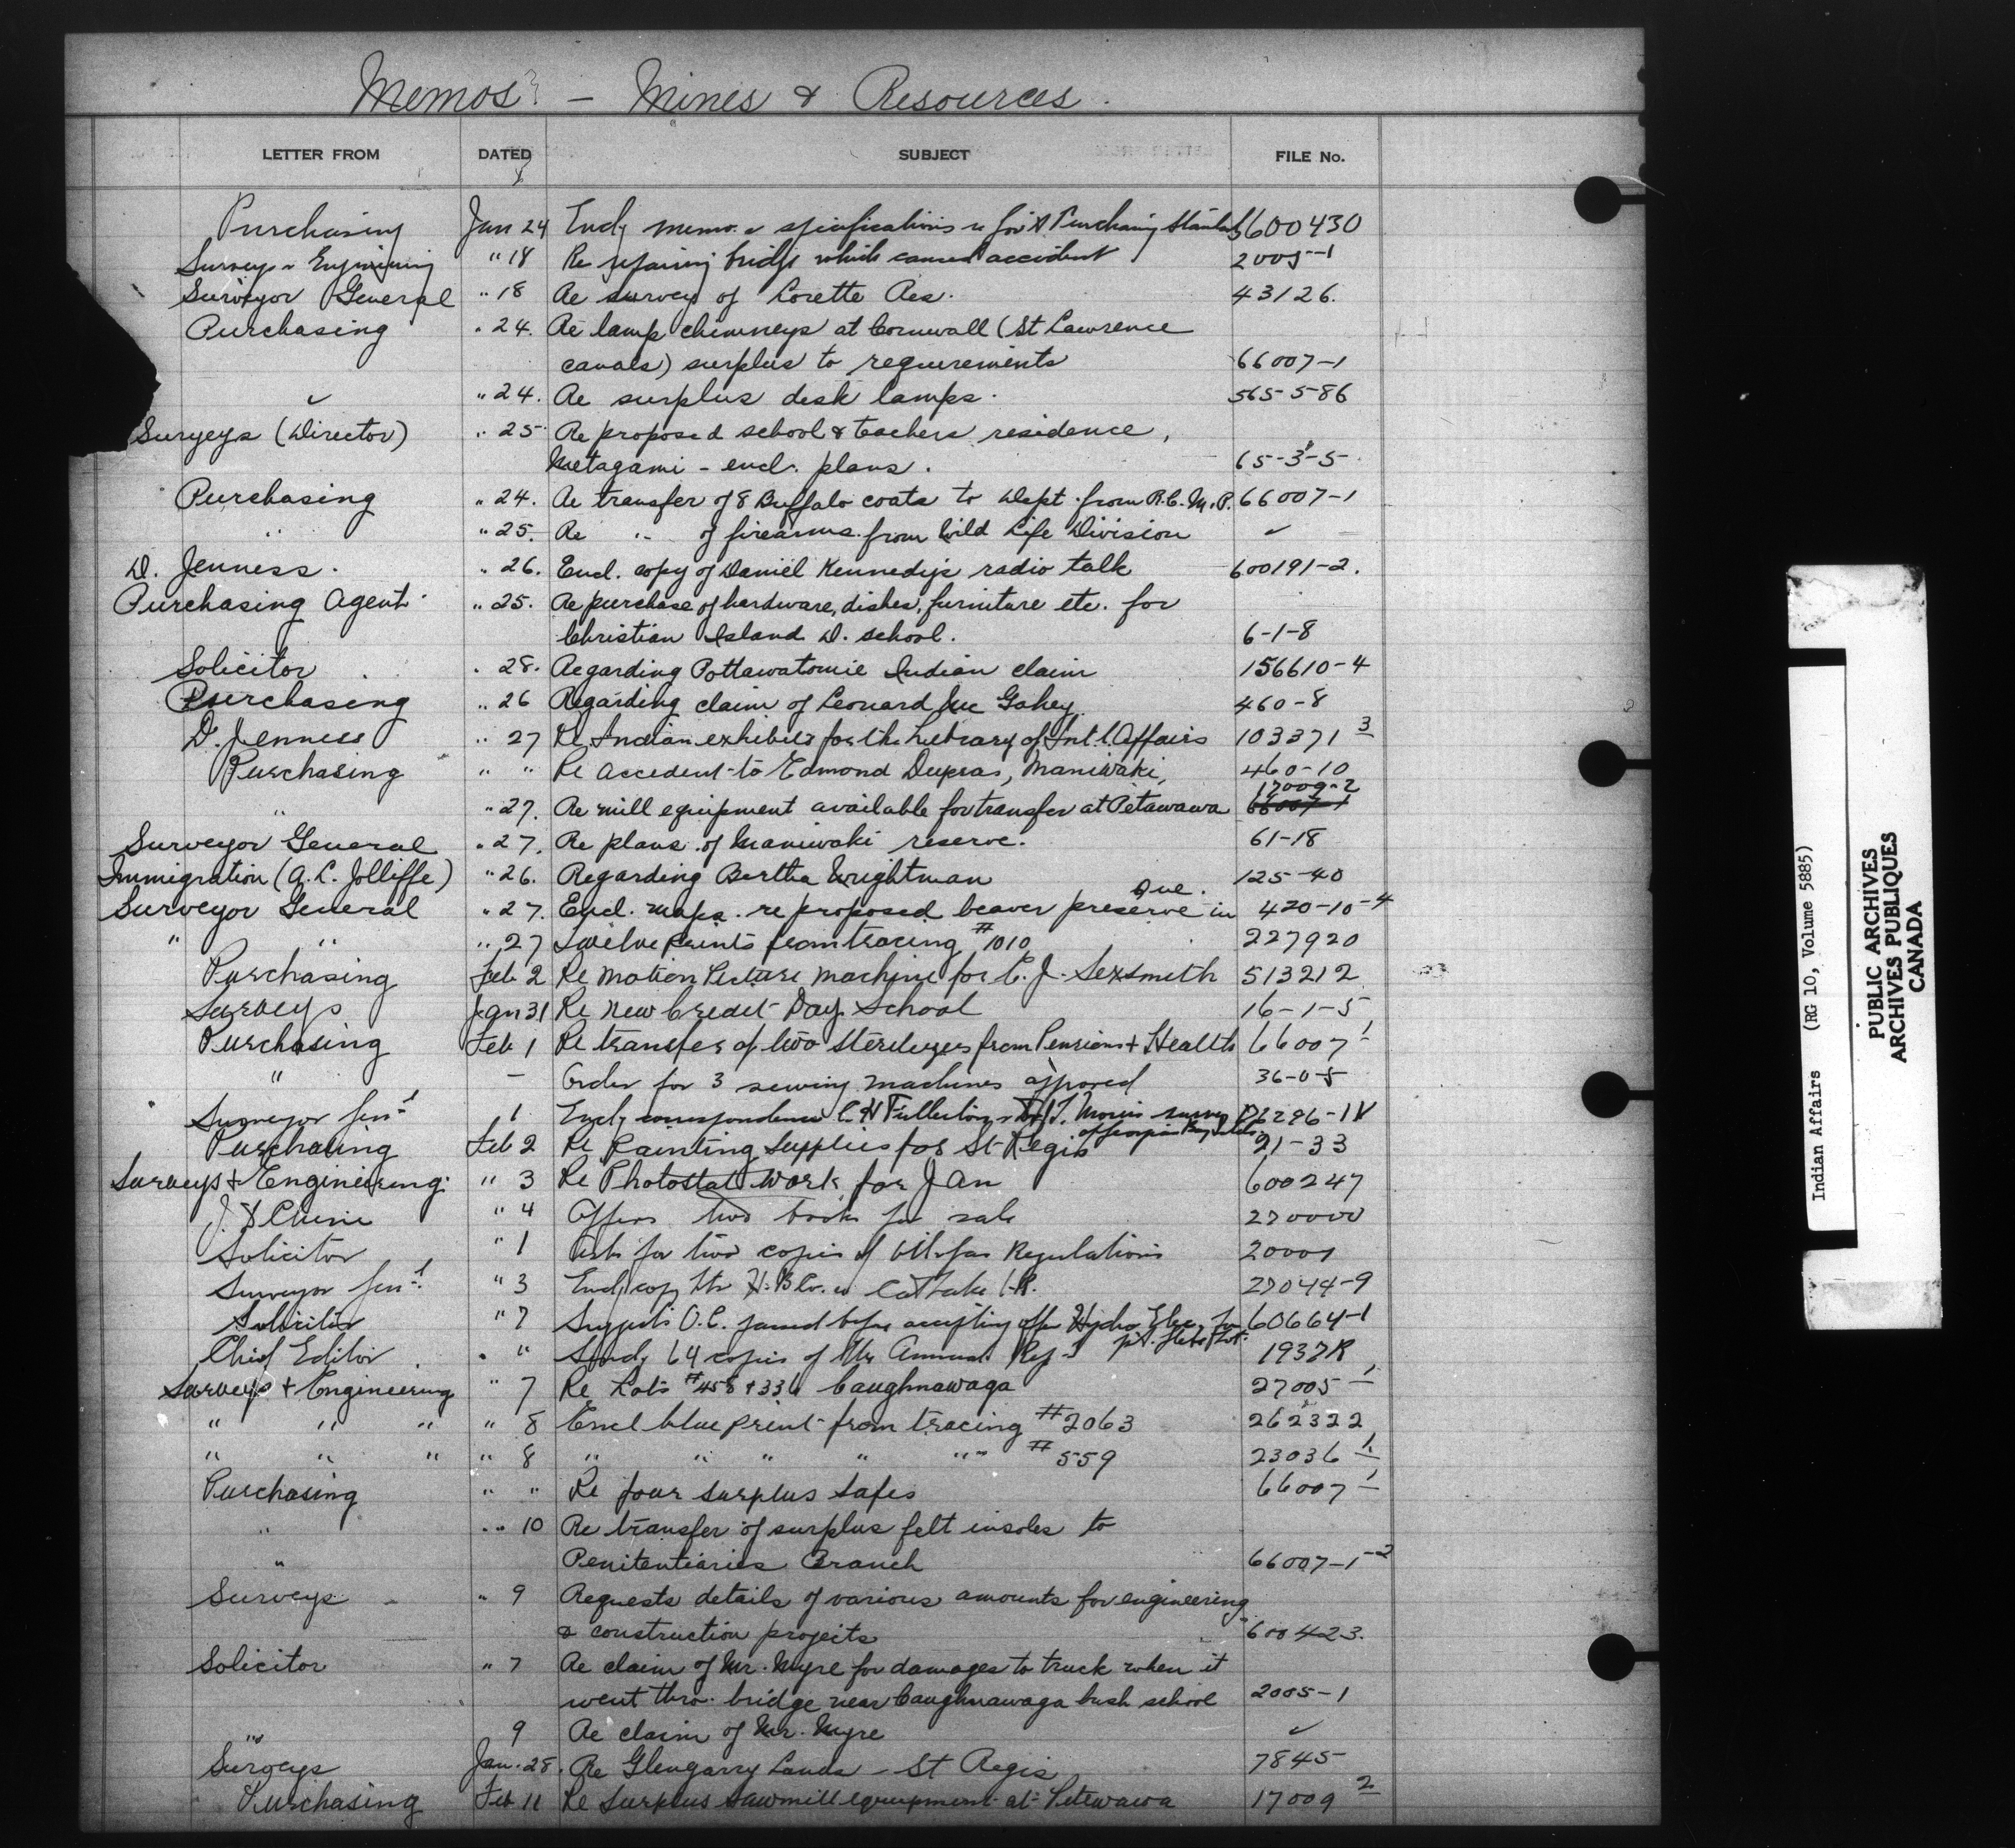 Memos - Mines & Resources.
LETTER FROM DATED SUBJECT FILE No.
Purchasing Jan 24 Encl memo & specifications Purchasing Standards 600430
Surveys & Engineering " 18 Re repairing bridge which caused accident 2005-1
Surveyor General " 18 Re survey of Lorette Res. 43126.
Purchasing " 24. Re lamp chimneys at Cornwall (St Lawrence
canals) surplus to requirements 66007-1
" 24. Re surplus desk lamps. 565-5-86
Surveys (Director) " 25 Re proposed school & teachers residence,
Metagami - encl. plans. 65-3-5
Purchasing " 24. Re transfer of 8 Buffalo coats to Dept. from R.C.M.P. 66007-1
" " 25. Re " of firearms from Wild Life Division ✓
D. Jenness. " 26. Encl. copy of Daniel Kennedy's radio talk 600191-2.
Purchasing Agent " 25. Re purchase of hardware, dishes, furniture etc. for
Christian Island D. school. 6-1-8
Solicitor " 28. Regarding Pottawatomie Indian claim 156610-4
Purchasing " 26 Regarding claim of Leonard Mc Gahey 460-8
D. Jenness " 27 Re Indian exhibits for the Library of Int'l. Affairs 103371 3
Purchasing " " Re accident to Edmond Dupras, Maniwaki, 460-10
17009-2
" " 27. Re mill equipment available for transfer at Petawawa 66007-1
Surveyor General " 27. Re plans of Maniwaki reserve. 61-18
Immigration (A. L. Jolliffe) " 26. Regarding Bertha Wrightman 125-40
Surveyor General " 27. Encl. maps. re proposed beaver preserve in Que. 420-10-4
" " " 27 Twelve prints from tracing #1010 227920
Purchasing Feb 2 Re Motion Picture machine for C. J. Sexsmith 513212
Surveys Jan 31 Re New Credit Day School 16-1-5
Purchasing Feb 1 Re transfer of two sterilizers from Pensions + Health 66007 1
" - Order for 3 sewing machines approved 36-0-5
Surveyor Gen'l 1 Encl correspondence C. H. Fullerton & T. Morris survey
Purchasing Feb 2 Re Painting Supplies for St Regis 21-33
Surveys + Engineering " 3 Re Photostat work for Jan 600247
" 4 Offers two books for sale
Solicitor " 1 Asks for two copies of Oil & Gas Regulations
Surveyor Gen'l " 3 Encl copy ltr H. B. Co. Cat Lake I.R. 27044-9
Solicitor " 7 Suggests O.C. passed before accepting offer Hydro Elec. 60664-1
Chief Editor " " Sends 64 copies of the Annual Rep. 1937R
Surveys + Engineering " 7 Re Lots #458 + 336 Caughnawaga 27005 1
" " " " 8 Encl blue print from tracing #2063 262322
" " " " 8 " " " " " #559 23036 1
Purchasing " " Re four surplus safes 66007 1
" " 10 Re transfer of surplus felt insoles to
" Penitentiaries Branch 66007-1-2
Surveys " 9 Requests details of various amounts for engineering
& construction projects 600423.
Solicitor " 7 Re claim of Mr. Myre for damages to truck when it
went thro. bridge near Caughnawaga bush school 2005-1
" 9 Re claim of Mr. Myre ✓
Surveys Jan. 28. Re Glengarry Lands - St Regis 7845
Purchasing Feb 11 Re Surplus sawmill equipment at Petewawa 17009 2
Indian Affairs (RG 10, Volume 5885)
PUBLIC ARCHIVES
ARCHIVES PUBLIQUES
CANADA